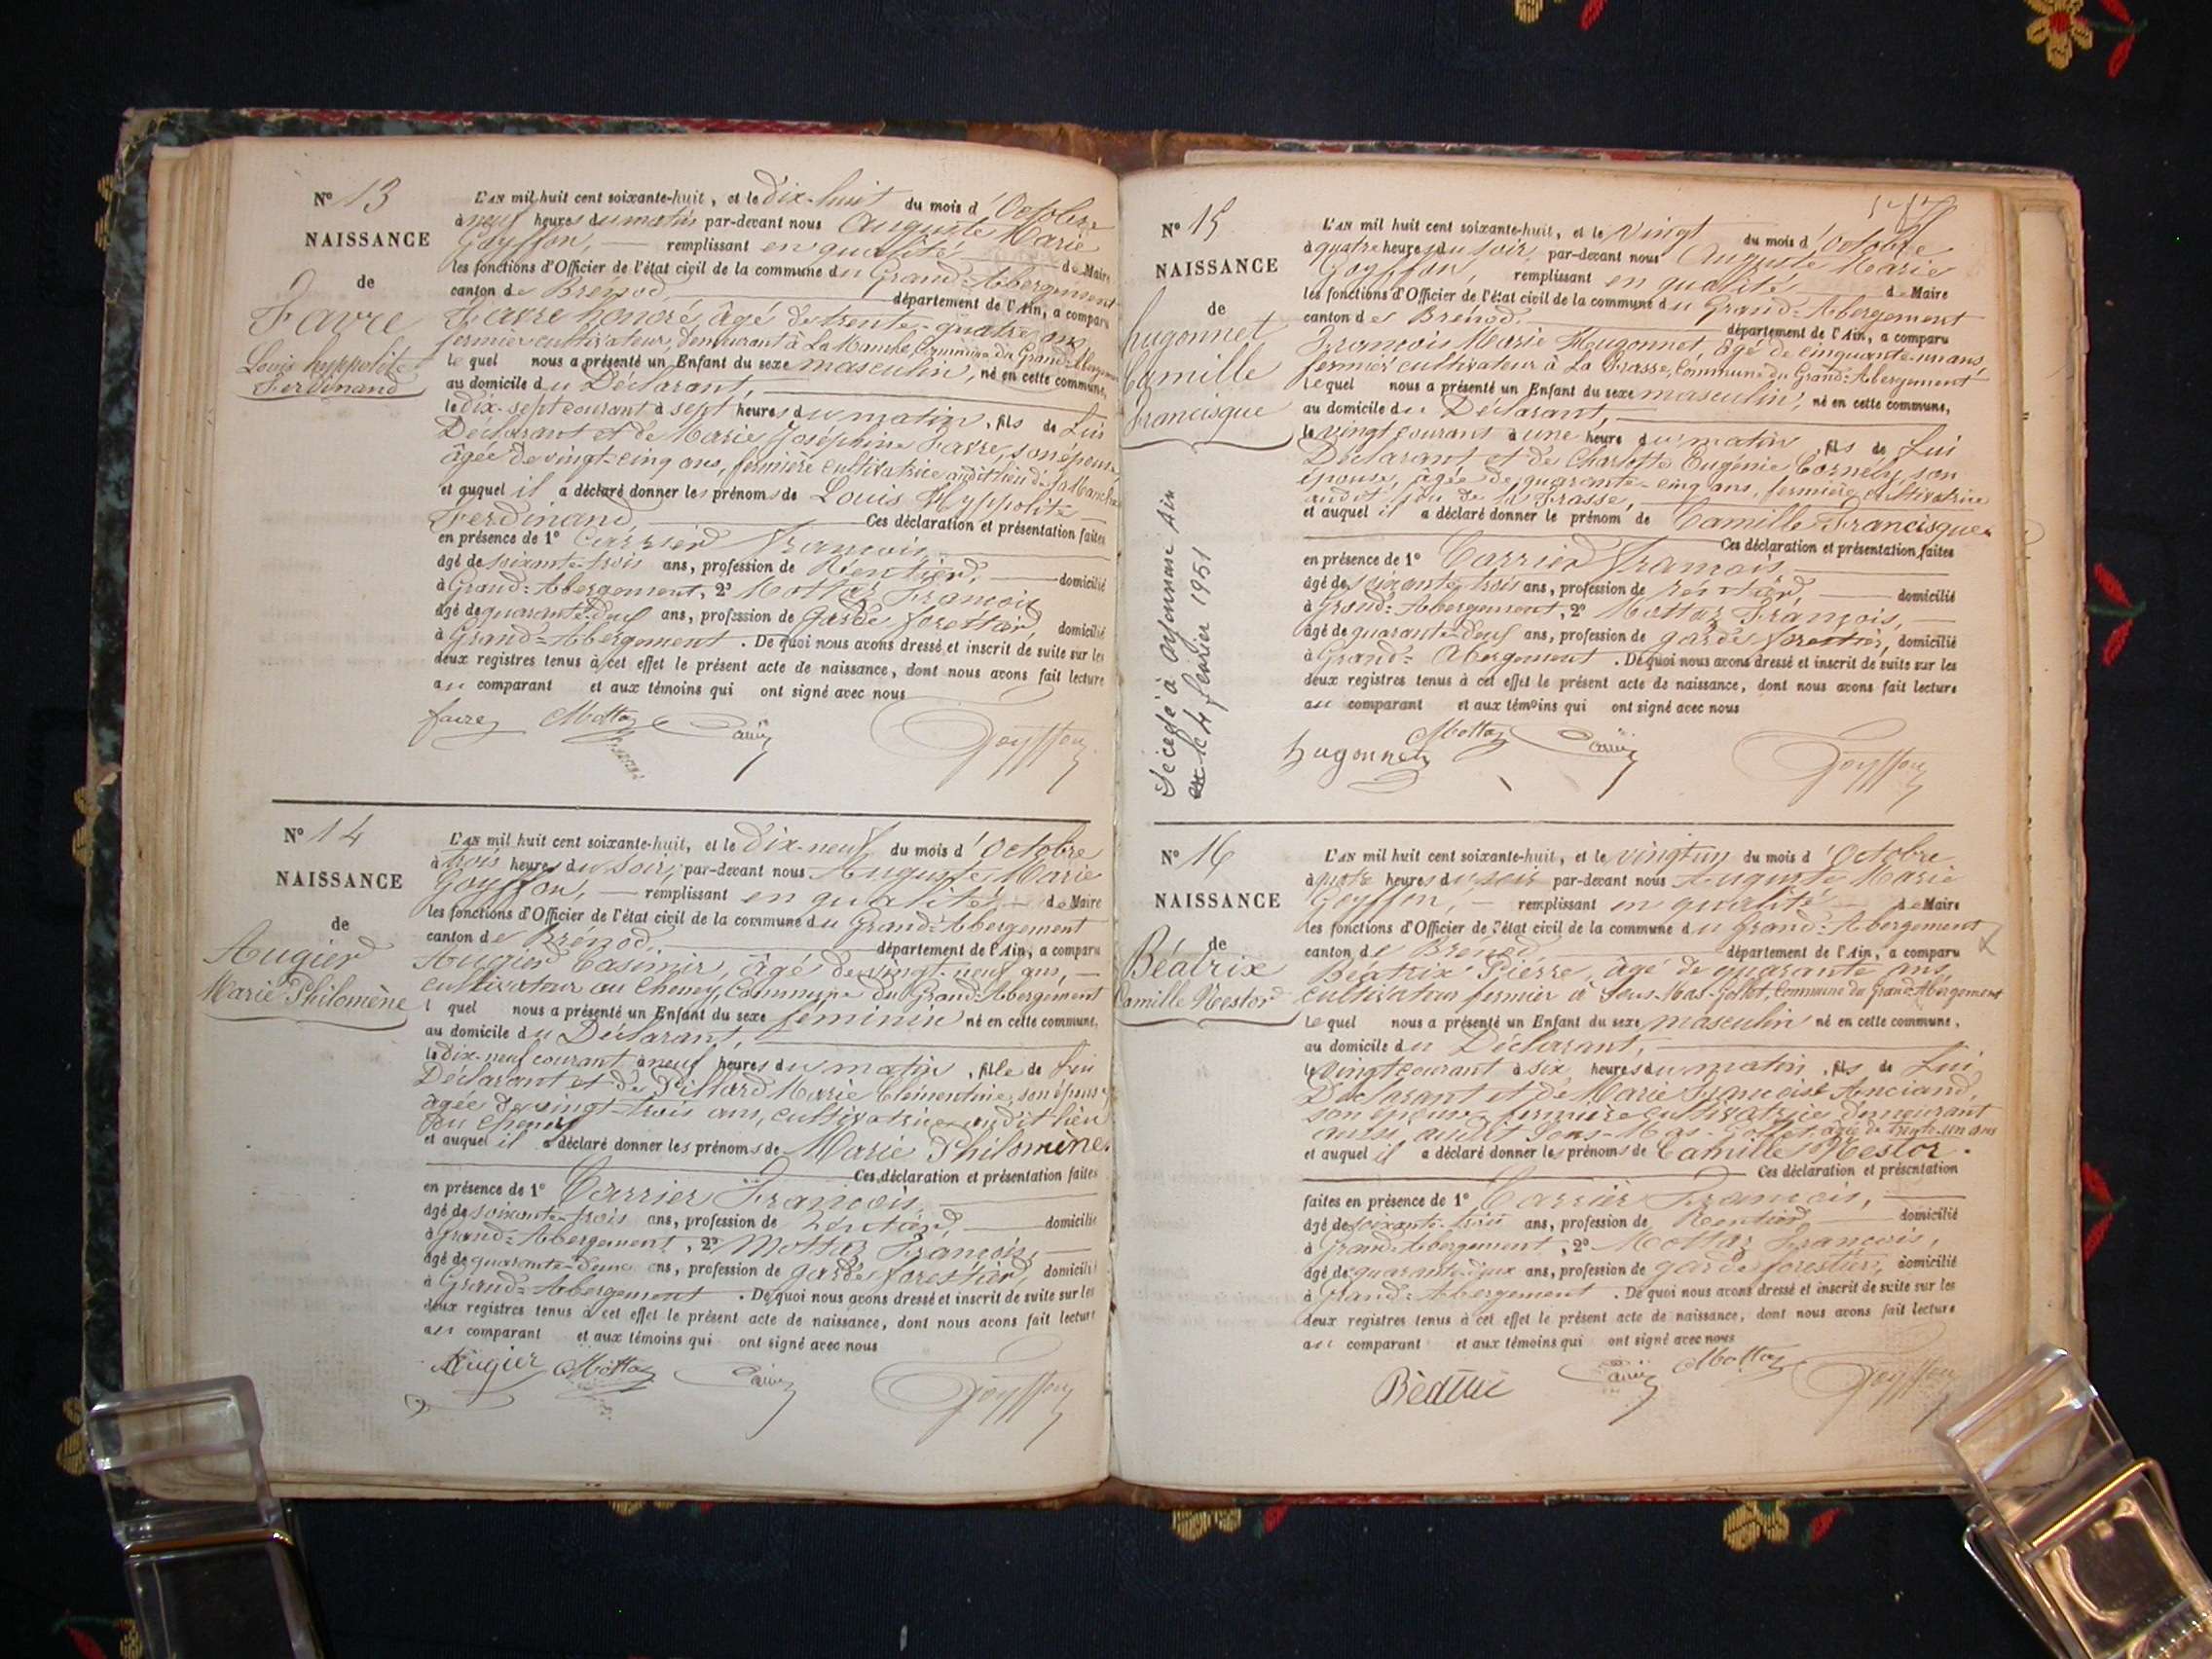 N° 13
NAISSANCE
de
Favre
Louis hyppolite
Ferdinand
L'AN mil huit cent soixante-huit, et le Dix-huit du mois d'Octobre
à neuf heures du matin par-devant nous Auguste Marie
Goyffon, remplissant en qualité de Maire
les fonctions d'Officier de l'état civil de la commune du Grand-Abergement
canton de Brénod, département de l'Ain, a comparu
Favre honoré, âgé de trente-quatre ans,
fermier cultivateur, demeurant à La Manche, Commune du Grand-Abergement
lequel nous a présenté un Enfant du sexe masculin, né en cette commune,
au domicile du Déclarant,
le dix-sept courant à sept heures du matin, fils de Lui
Déclarant et de Marie Joséphine Favre, son épouse
âgée de vingt-cinq ans, fermière cultivatrice audit lieu de la Manche
et auquel il a déclaré donner les prénoms de Louis Hyppolite
Ferdinand, Ces déclaration et présentation faites
en présence de 1° Carrier François,
âgé de soixante-trois ans, profession de Rentier, domicilié
à Grand-Abergement, 2° Mottaz François
âgé de quarante-deux ans, profession de garde forestier, domicilié
à Grand-Abergement. De quoi nous avons dressé et inscrit de suite sur les
deux registres tenus à cet effet le présent acte de naissance, dont nous avons fait lecture
au comparant et aux témoins qui ont signé avec nous
favre Mottaz Carrier Goyffon
N° 14
NAISSANCE
de
Augier
Marie Philomène
L'AN mil huit cent soixante-huit, et le Dix-neuf du mois d'Octobre
à trois heures du soir, par-devant nous Auguste Marie
Goyffon, remplissant en qualité de Maire
les fonctions d'Officier de l'état civil de la commune du Grand-Abergement
canton de Brénod, département de l'Ain, a comparu
Augier Casimir, âgé de vingt-neuf ans,
cultivateur au Cheney, Commune du Grand-Abergement
l quel nous a présenté un Enfant du sexe féminin né en cette commune,
au domicile du Déclarant,
le dix-neuf courant à neuf heures du matin, fille de Lui
Déclarant et de Pillard Marie Clémentine, son épouse
âgée de vingt-trois ans, cultivatrice audit lieu
du Cheney
et auquel il a déclaré donner les prénoms de Marie Philomène.
Ces déclaration et présentation faites
en présence de 1° Carrier François,
âgé de soixante-trois ans, profession de Rentier, domicilié
à Grand-Abergement, 2° Mottaz François,
âgé de quarante-deux ans, profession de garde forestier, domicilié
à Grand-Abergement. De quoi nous avons dressé et inscrit de suite sur les
deux registres tenus à cet effet le présent acte de naissance, dont nous avons fait lecture
au comparant et aux témoins qui ont signé avec nous
Augier Mottaz Carrier Goyffon
N° 15
NAISSANCE
de
hugonnet
Camille
Francisque
Décédé à oyonnax Ain
le 4 février 1951
L'AN mil huit cent soixante-huit, et le Vingt du mois d'Octobre
à quatre heures du soir, par-devant nous Auguste Marie
Goyffon, remplissant en qualité de Maire
les fonctions d'Officier de l'état civil de la commune du Grand-Abergement
canton de Brénod, département de l'Ain, a comparu
François Marie Hugonnet, âgé de cinquante-un ans,
fermier cultivateur à La Frasse, Commune du Grand-Abergement
lequel nous a présenté un Enfant du sexe masculin, né en cette commune,
au domicile du Déclarant,
le vingt courant à une heure du matin, fils de Lui
Déclarant et de Charlotte Eugénie Cornély, son
épouse, âgée de quarante-cinq ans, fermière cultivatrice
audit lieu de la Frasse,
et auquel il a déclaré donner le prénom de Camille Francisque.
Ces déclaration et présentation faites
en présence de 1° Carrier François,
âgé de soixante-trois ans, profession de rentier, domicilié
à Grand-Abergement, 2° Mottaz François,
âgé de quarante-deux ans, profession de garde forestier, domicilié
à Grand-Abergement. De quoi nous avons dressé et inscrit de suite sur les
deux registres tenus à cet effet le présent acte de naissance, dont nous avons fait lecture
au comparant et aux témoins qui ont signé avec nous
hugonnet Mottaz Carrier Goyffon
N° 16
NAISSANCE
de
Béatrix
Camille Nestor
L'AN mil huit cent soixante-huit, et le vingt un du mois d'Octobre
à quatre heures du soir par-devant nous Auguste Marie
Goyffon, remplissant en qualité de Maire
les fonctions d'Officier de l'état civil de la commune du Grand-Abergement
canton de Brénod département de l'Ain, a comparu
Béatrix Pierre, âgé de quarante ans,
cultivateur fermier à Sous-Mas-Gollet, Commune du Grand-Abergement
lequel nous a présenté un Enfant du sexe masculin né en cette commune,
au domicile du Déclarant,
le vingt courant à six heures du matin, fils de Lui
Déclarant et de Marie Françoise Anciand,
son épouse fermière cultivatrice demeurant
aussi audit Sous-Mas-Gollet, âgée de trente-un ans
et auquel il a déclaré donner les prénoms de Camille Nestor.
Ces déclaration et présentation
faites en présence de 1° Carrier François,
âgé de soixante-trois ans, profession de Rentier, domicilié
à Grand-Abergement, 2° Mottaz François,
âgé de quarante-deux ans, profession de garde forestier, domicilié
à Grand-Abergement. De quoi nous avons dressé et inscrit de suite sur les
deux registres tenus à cet effet le présent acte de naissance, dont nous avons fait lecture
au comparant et aux témoins qui ont signé avec nous
Béatrix Carrier Mottaz Goyffon